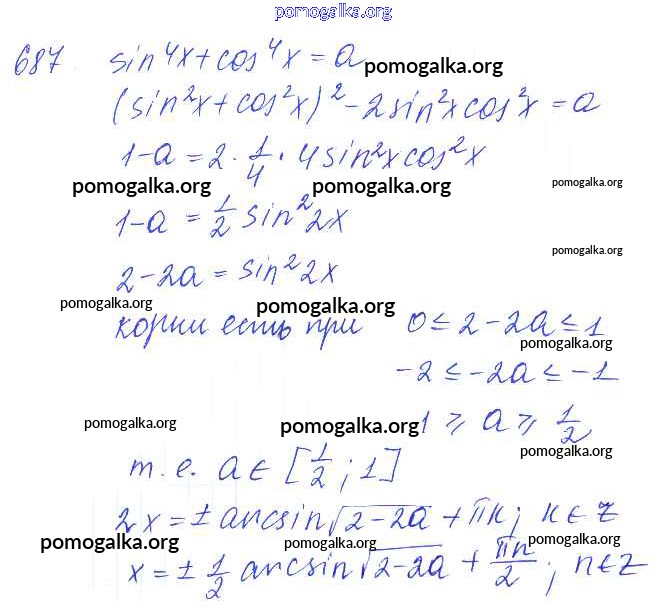 pomogalka.org
687. sin⁴x + cos⁴x = a
pomogalka.org
(sin²x + cos²x)² - 2sin²xcos²x = a
1-a = 2 · 1/4 · 4sin²xcos²x
pomogalka.org pomogalka.org pomogalka.org
1-a = 1/2 sin²2x
pomogalka.org
2-2a = sin²2x
pomogalka.org pomogalka.org
корни есть при 0 ≤ 2-2a ≤ 1
pomogalka.org
-2 ≤ -2a ≤ -1
pomogalka.org pomogalka.org
1 ≥ a ≥ 1/2
pomogalka.org
т.е. a ∈ [1/2; 1]
2x = ± arcsin√(2-2a) + πn; n ∈ Z
pomogalka.org pomogalka.org pomogalka.org
x = ± 1/2 arcsin√(2-2a) + πn/2; n ∈ Z